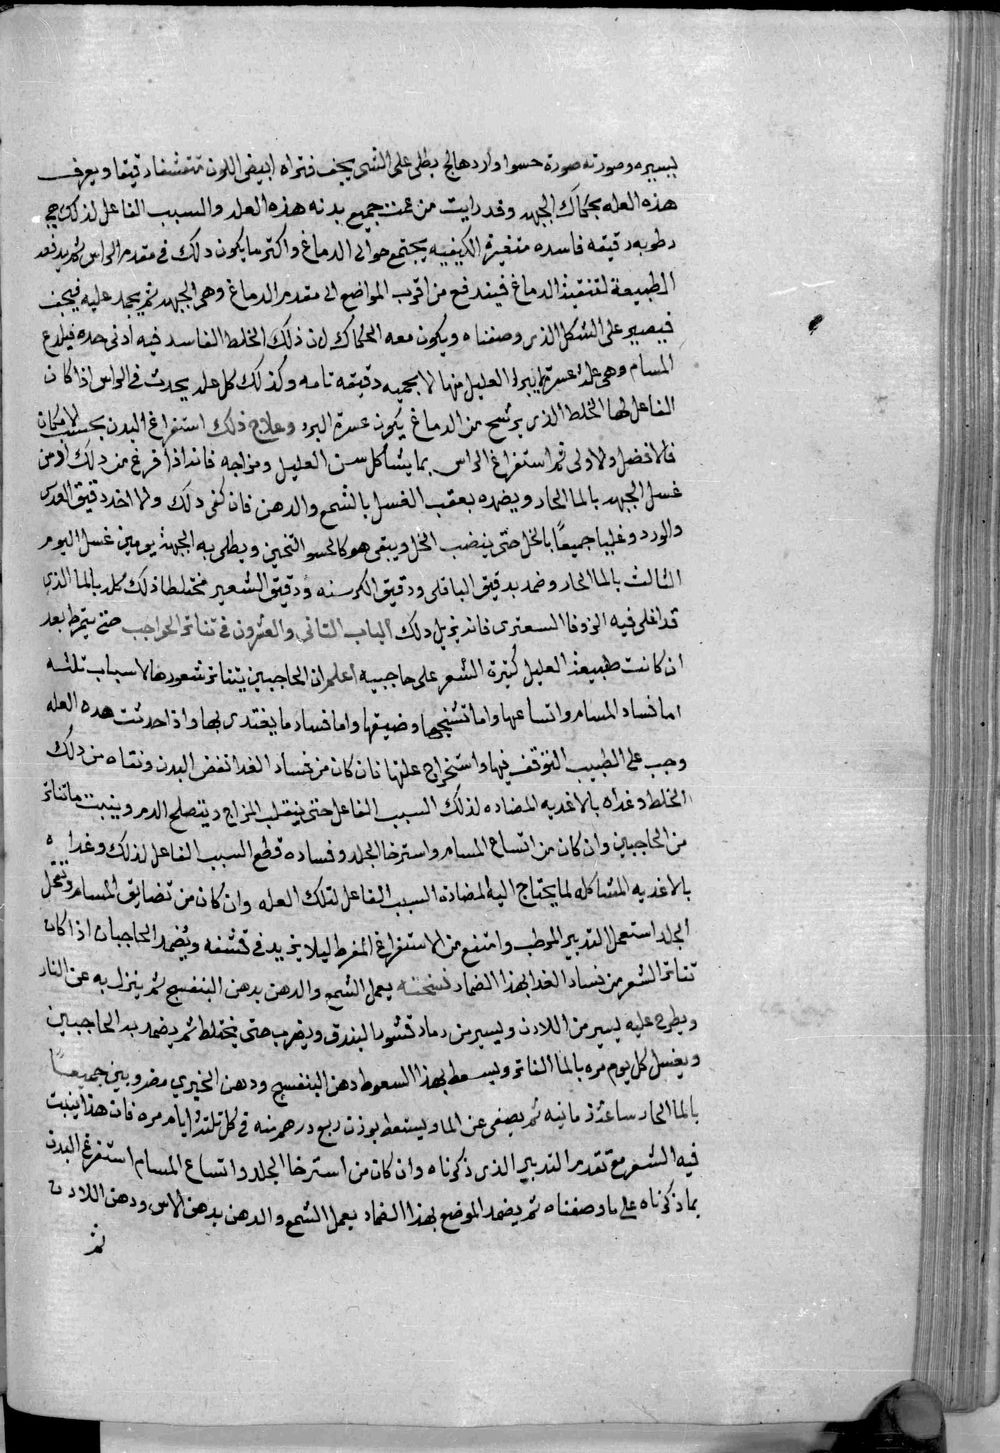 يسيره وصورته صورة حسوا واردهالج يطلى على الشى يجف فتراه ابيض اللون متقشفا دقيقا ويعرف
هذه العله بحكاك الجبهه وقد رايت من عمت جميع بدنه هذه العله والسبب الفاعل لذلك هي
رطوبه دقيقه فاسده متغيرة الكيفيه يجتمع حوالى الدماغ واكثر ما يكون ذلك في مقدم الراس ثم يدفعه
الطبيعة لتنقية الدماغ فيندفع من اقرب المواضع الى مقدم الدماغ وهى الجبهه ثم يجمد عليه فيجف
فيصير على الشكل الذى وصفناه ويكون معه الحكاك لان ذلك الخلط الفاسد فيه ادنى حده فيلدع
المسام وهى علة عسرة يبرا العليل منها لا بحميه دقيقه تامه وكذلك كل عله يحدث في الراس اذا كان
الفاعل لها الخلط الذى يرشح من الدماغ يكون عسرة البرو وعلاج ذلك استفراغ البدن بحسب الامكان
فالافضل والاولى ثم استفراغ الراس بما يشاكل سن العليل ومزاجه فانه اذا فرغ من ذلك ادمن
غسل الجبهه بالما الحار ويضمده بعقب الغسل بالشمع والدهن فان كفى ذلك والا اخذ دقيق العدس
والورد وغليا جميعًا بالخل حتى ينضب الخل ويبقى هو كالحسو الثخين ويطلى به الجبهة يومين غسل اليوم
الثالث بالما الحار وضمد بدقيق الباقلى ودقيق الكرسنه ودقيق الشعير مختلطا ذلك كله بالما الذى
قد اغلى فيه الزوفا السعترى فانه يزيل ذلك الباب الثانى والعشرون في تناثر الحواجب حتى يتمرط بعد
ان كانت طبيعة العليل كثيرة الشعر على حاجبيه اعلم ان الحاجبين يتناثر شعورها لاسباب ثلثه
اما فساد المسام واتساعها واما تشنجها وضيقها واما فساد ما يغتدى بها واذا حدثت هذه العله
وجب على الطبيب التوقف فيها واستخراج علتها فان كان من فساد الغدا نفض البدن ونقاه من ذلك
الخلط وغداه بالاغديه المضاده لذلك السبب الفاعل حتى ينقلب المزاج ويتصلح الدم وينبت ما تناثر
من الحاجبين وان كان من اتساع المسام واسترخا الجلد وفساده قطع السبب الفاعل لذلك وغداه
بالاغديه المشاكله لما يحتاج اليه المضادة السبب الفاعل لتلك العله وان كان من تضايق المسام وتقحل
الجلد استعمل التدبير المرطب وامتنع من الاستفراغ المفرط ليلا يزيد في قشفه ويضمد الحاجبان اذا كان
تناثر الشعر من فساد الغدا بهذا الضماد نسخته يعمل الشمع والدهن بدهن البنفسج ثم ينزل به عن النار
ويطرح عليه يسير من اللادن ويسير من رماد قشور البندق ويضرب حتى يختلط ثم يضمد به الحاجبين
ويغسل كل يوم مره بالما الفاتر ويسعط بهذا السعوط دهن البنفسج ودهن الخيري مضروبين جميعًا
بالما الحار ساعة زمانيه ثم يصفى عن الما ويستعط بوزن ربع درهم منه في كل ثلثة ايام مره فان هذا ينبت
فيه الشعر مع تقدم التدبير الذى ذكرناه وان كان من استرخا الجلد واتساع المسام استفرغ البدن
بما ذكرناه على ما وصفناه ثم يضمد الموضع بهذا الضماد يعمل الشمع والدهن بدهن الاس ودهن اللادن
ثم